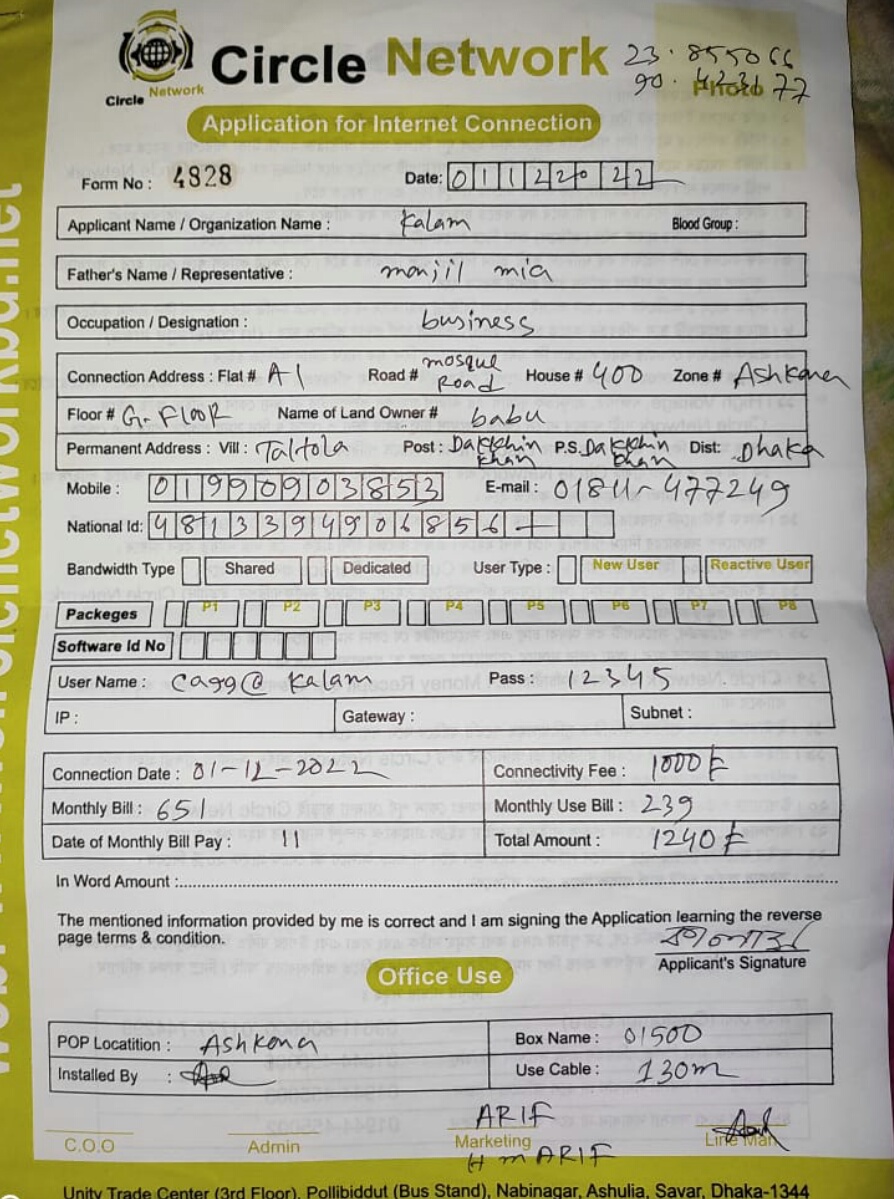 Circle Network
Circle Network
23.855066
90.423177
Photo
Application for Internet Connection
Form No : 4828
Date: 01122022
Applicant Name / Organization Name : Kalam Blood Group :
Father's Name / Representative : monjil mia
Occupation / Designation : business
Connection Address : Flat # A1 Road # mosque Road House # 400 Zone # Ashkona
Floor # G. FLOOR Name of Land Owner # babu
Permanent Address : Vill : Taltola Post : Dakkhin khan P.S. Dakkhin khan Dist: Dhaka
Mobile : 01990903853 E-mail : 01844-477249
National Id: 4813394906856
Bandwidth Type Shared Dedicated User Type : New User Reactive User
Packeges P1 P2 P3 P4 P5 P6 P7 P8
Software Id No
User Name : cagg@kalam Pass : 12345
IP : Gateway : Subnet :
Connection Date : 01-12-2022 Connectivity Fee : 1000৳
Monthly Bill : 651 Monthly Use Bill : 239
Date of Monthly Bill Pay : 11 Total Amount : 1240৳
In Word Amount :
The mentioned information provided by me is correct and I am signing the Application learning the reverse
page terms & condition.
Applicant's Signature
Office Use
POP Locatition : Ashkona Box Name : 01500
Installed By : Use Cable : 130m
ARIF
C.O.O Admin Marketing Line Man
H m ARIF
Unity Trade Center (3rd Floor), Pollibiddut (Bus Stand), Nabinagar, Ashulia, Savar, Dhaka-1344